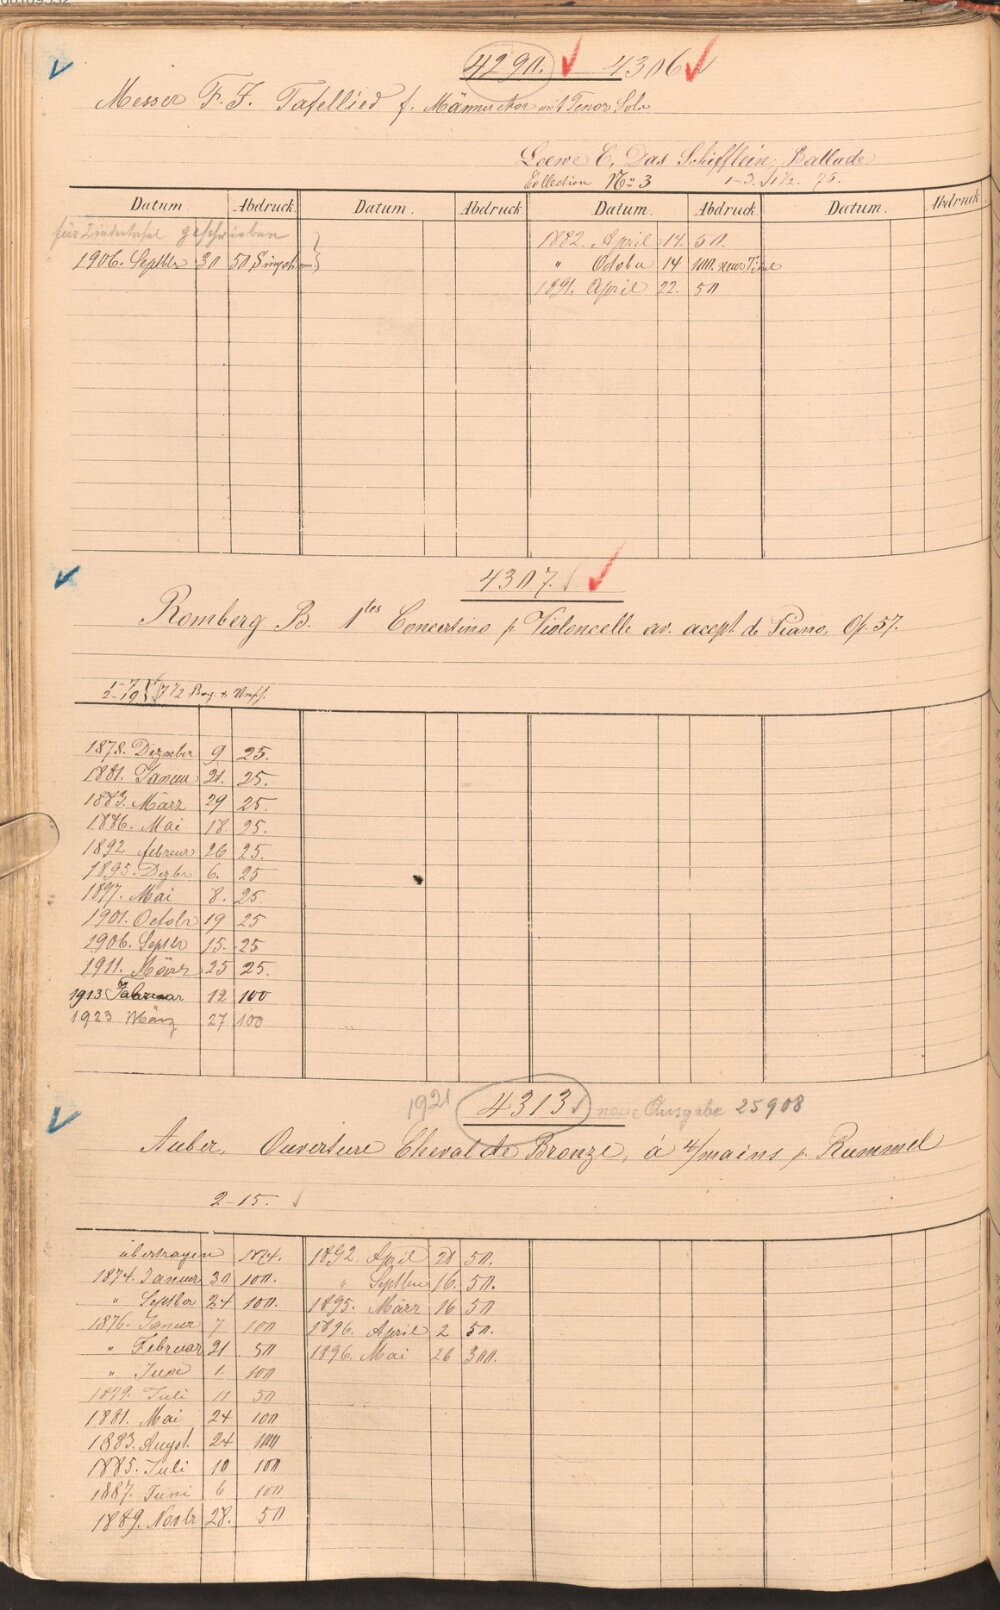 4290. 4306
Messer F. J. Tafellied f. Männerchor mit Tenor Solo
Loewe C, Das Schifflein, Ballade
Collection No 3 1-3. 1½. 75.
Datum Abdruck Datum. Abdruck Datum. Abdruck Datum. Abdruck
für Liedertafel geschrieben 1882. April 14. 50.
1906. Septbr 30 50 Singstimm " Octobr 14 100. neue Titel
1891. April 22. 50
4307.
Romberg B. 1tes Concertino p. Violoncelle av. acept de Piano, Op. 57.
1-7
2-19 7½ Bog + Umsch.
1878. Dezember 9. 25.
1881. Januar 21. 25.
1883. März 29 25.
1886. Mai 18. 25.
1892 februar 26 25.
1895. Dezbr 6. 25
1897. Mai 8. 25.
1901. Octobr 19 25
1906. Septbr 15. 25
1911. März 25 25.
1913 Februar 12 100
1923 März 27 100
1921 4313 neue Ausgabe 25908
Auber, Ouverture Cheval de Bronze, à 4/mains p. Rummel
2-15.
übertragen 1874. 1892. April 28 50.
1874. Januar 30 100. " Septbr 16. 50.
" Septber 24 100. 1895. März 16 50
1876. Januar 7 100 1896. April 2 50.
" Februar 21 50 1896. Mai 26 300.
" Juni 1. 100
1879. Juli 11 50
1881. Mai 24 100
1883. Augst. 24 100
1885. Juli 10 100
1887. Juni 6 100
1889. Novbr 28. 50